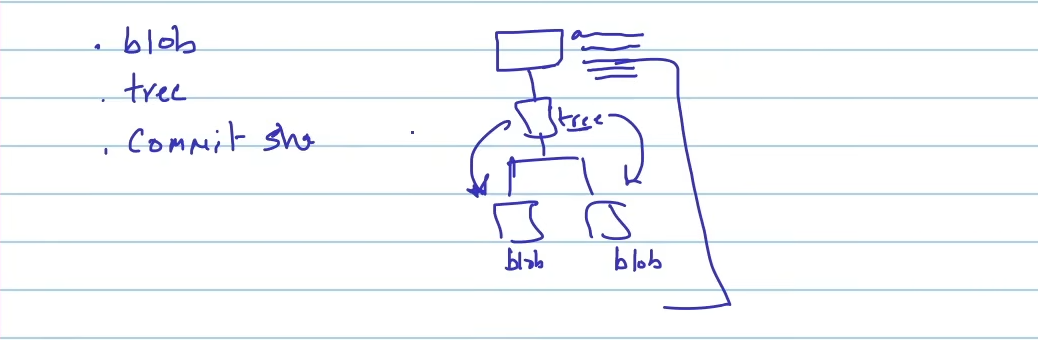 . blob
. tree
. Commit sha
tree
blob
blob